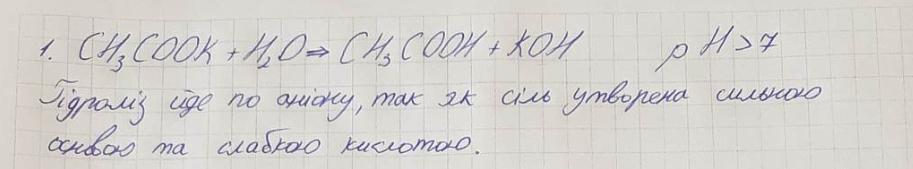 1. CH₃COOK + H₂O ⇒ CH₃COOH + KOH pH > 7
Гідроліз йде по аніону, так як сіль утворена сильною
основою та слабкою кислотою.